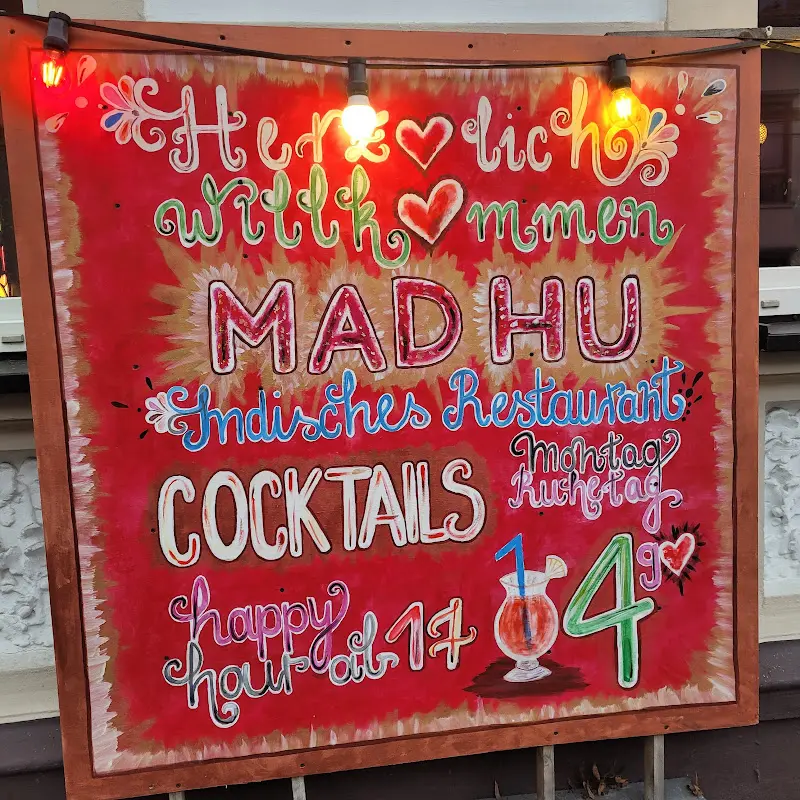 Herzlich
willkommen
MADHU
Indisches Restaurant
COCKTAILS
Montag
Ruhetag
happy
hour ab 17
4,90